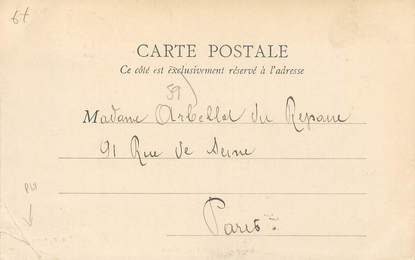 6t
CARTE POSTALE
Ce côté est exclusivement réservé à l'adresse
59
Madame Arbellot du Repaire
91 Rue de Seine
Paris